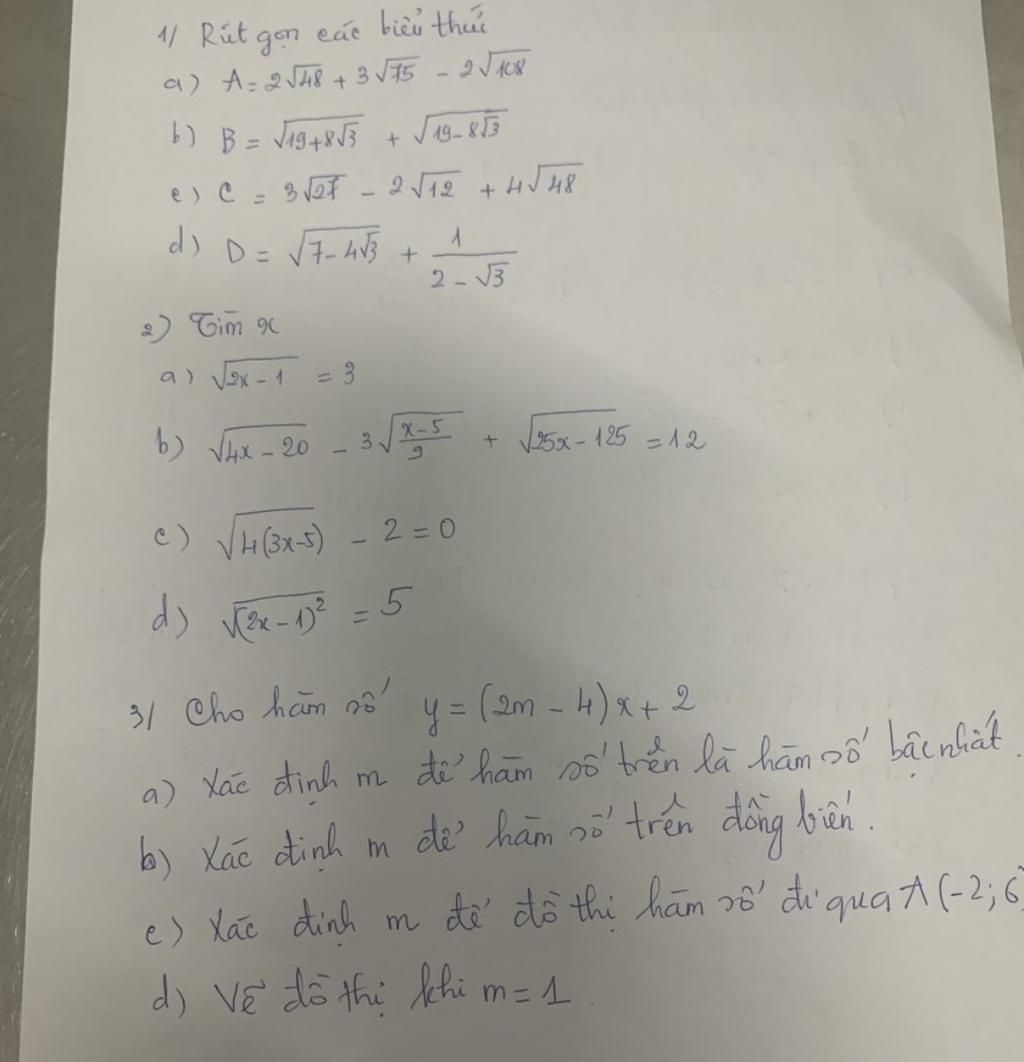 1/ Rút gọn các biểu thức
a) A = 2√48 + 3√75 - 2√108
b) B = √(19+8√3) + √(19-8√3)
c) C = 3√27 - 2√12 + 4√48
d) D = √(7-4√3) + 1/(2-√3)
2) Tìm x
a) √(2x-1) = 3
b) √(4x-20) - 3√((x-5)/9) + √(25x-125) = 12
c) √(4(3x-5)) - 2 = 0
d) √((2x-1)²) = 5
3/ Cho hàm số y = (2m - 4)x + 2
a) Xác định m để hàm số trên là hàm số bậc nhất.
b) Xác định m để hàm số trên đồng biến.
c) Xác định m để đồ thị hàm số đi qua A(-2; 6)
d) Vẽ đồ thị khi m = 1.